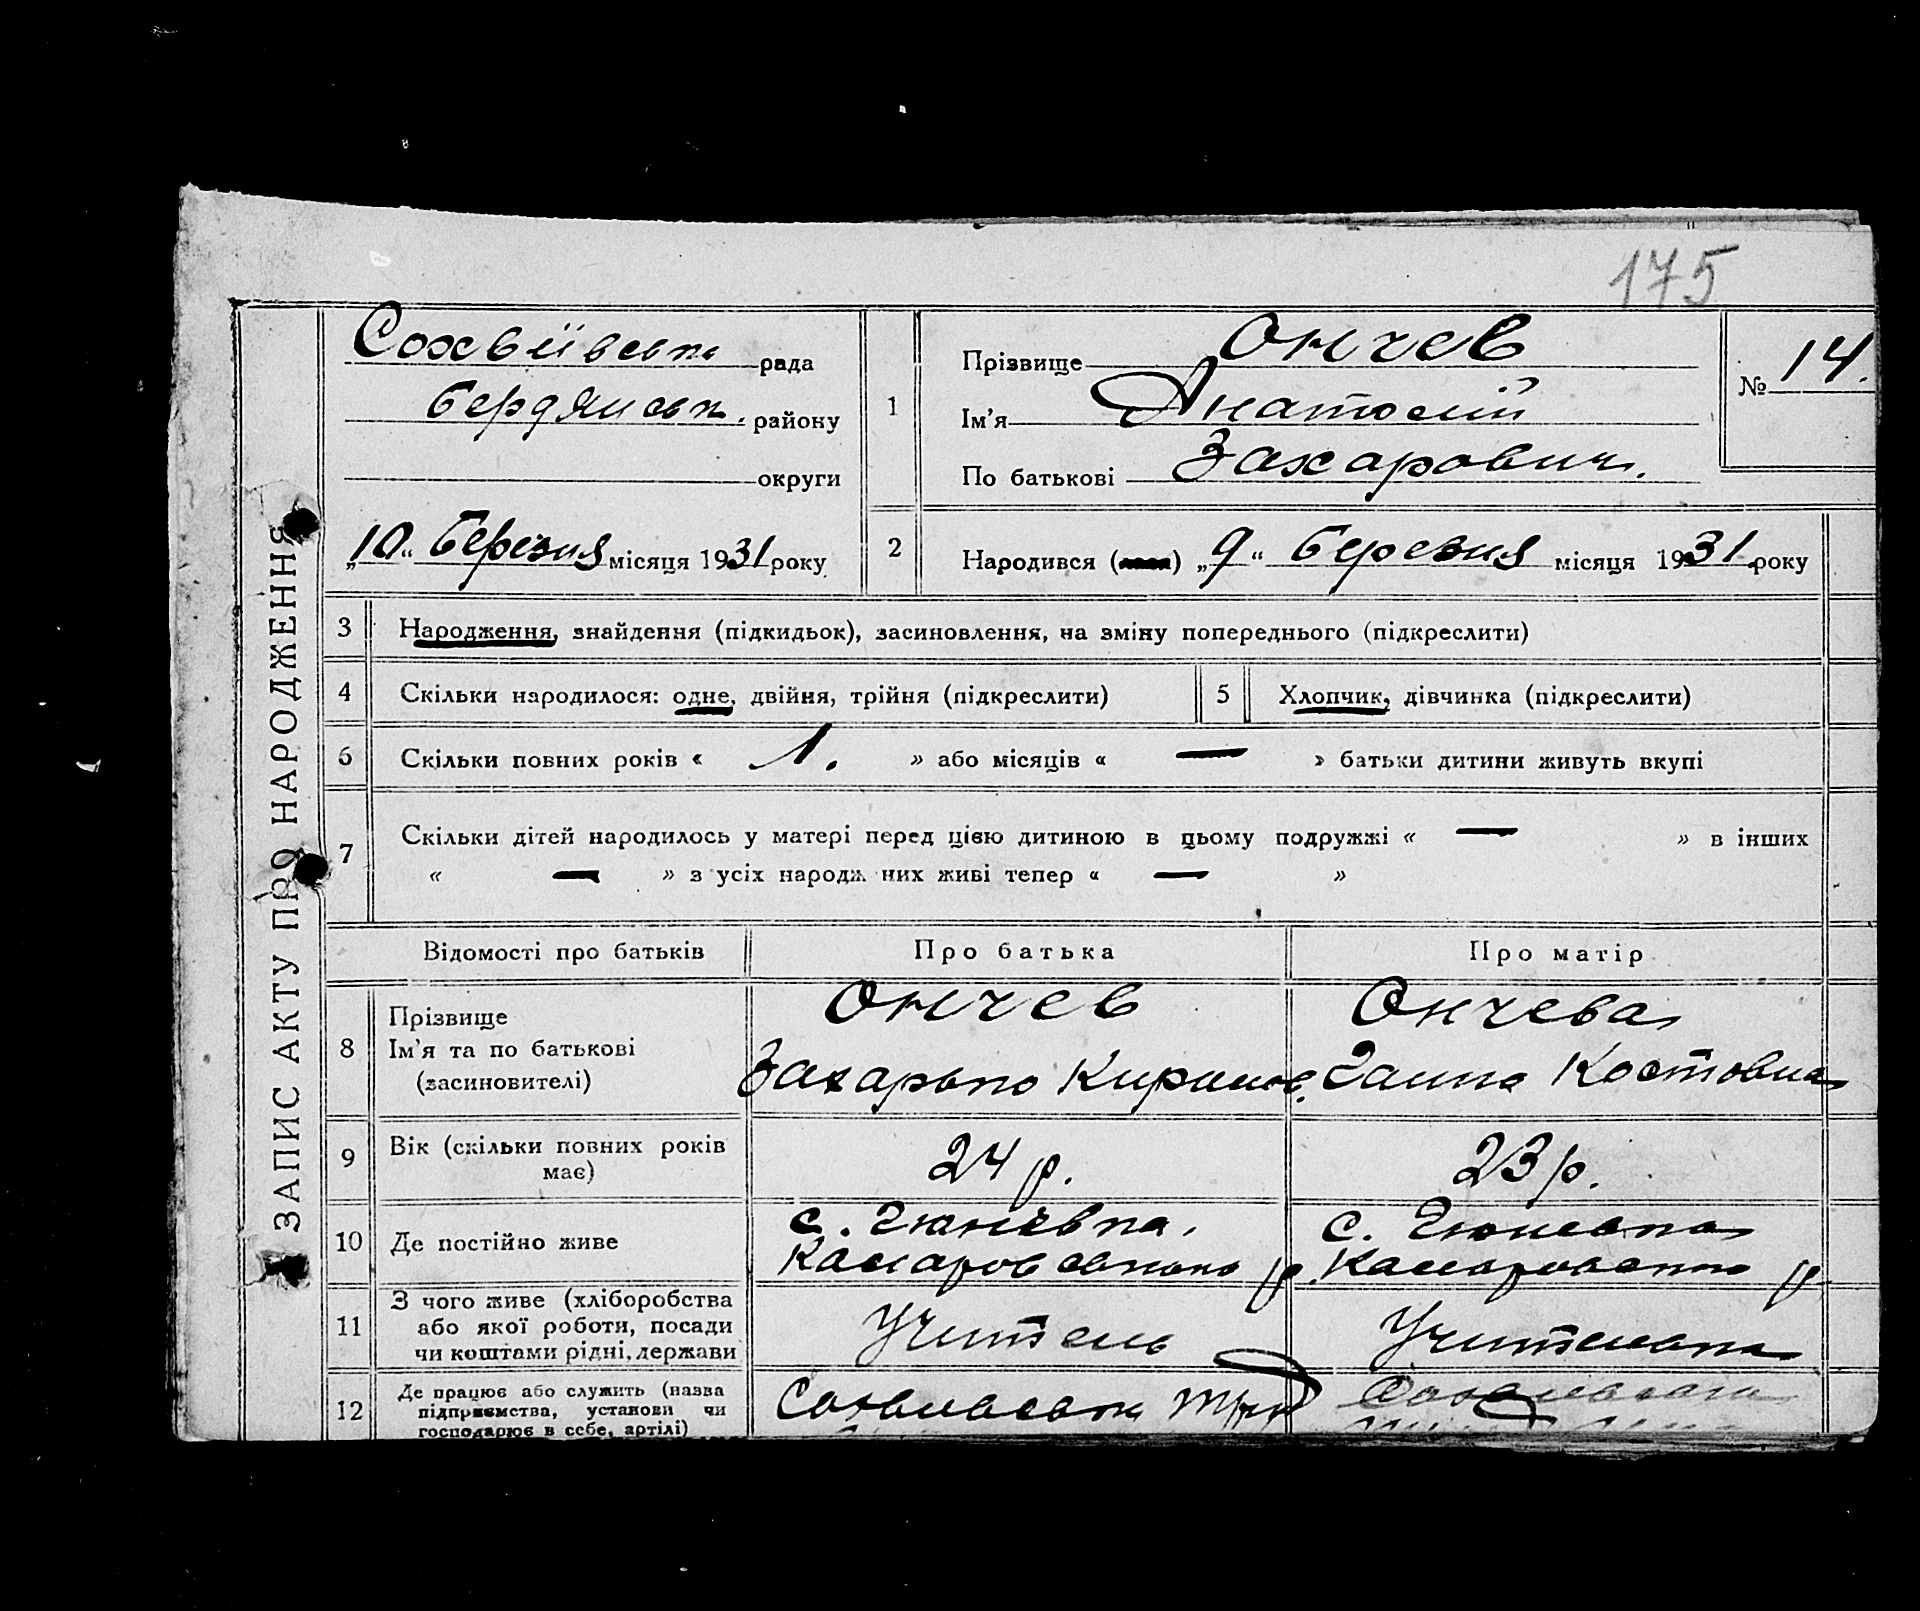 175
ЗАПИС АКТУ ПРО НАРОДЖЕННЯ
Сохвіївська рада
Бердянськ. району
округи
„10“ Березня місяця 1931 року
1
Прізвище Ончев
Ім'я Анатолій
По батькові Захарович.
№ 14.
2
Народився ( ) „9“ Березня місяця 1931 року
3 Народження, знайдення (підкидьок), засиновлення, на зміну попереднього (підкреслити)
4 Скільки народилося: одне, двійня, трійня (підкреслити)
5 Хлопчик, дівчинка (підкреслити)
6 Скільки повних років « 1. » або місяців « — » батьки дитини живуть вкупі
7 Скільки дітей народилось у матері перед цією дитиною в цьому подружжі « — » в інших
« — » з усіх народж них живі тепер « — »
Відомості про батьків Про батька Про матір
8 Прізвище
Ім'я та по батькові
(засиновителі)
Ончев
Захарько Кирилов.
Ончева
Ганна Костовна
9 Вік (скільки повних років
має)
24 р.
23 р.
10 Де постійно живе
с. Гюнёвка,
Р.
с. Гюневка
р
11 З чого живе (хліборобства
або якої роботи, посади
чи коштами рідні, держави
Учитель
Учителька
12 Де працює або служить (назва
підприємства, установи чи
господарює в себе, артілі)